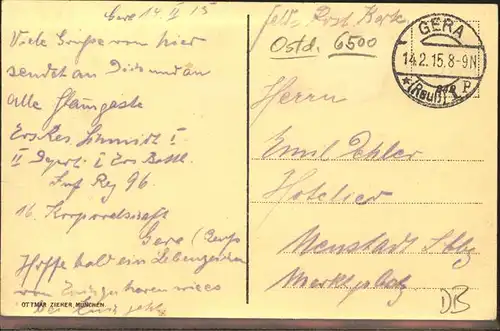 Gera 14 II 15
Viele Grüße von hier
sendet an Dich und an
alle Stammgäste
Ers Res. Schmidt I
II Depot. I Ers Battl.
Inf Reg 96.
16. Korporalschaft
Gera (Reuß
Hoffe bald ein Lebenszeichen
von
OTTMAR ZIEHER, MÜNCHEN.
Feld-Post Karte
Ostd. 6500
GERA
14.2.15.8-9N
*(Reuß) 1. P.
Herrn
Emil
Hotelier
Neustadt
Marktplatz
DB